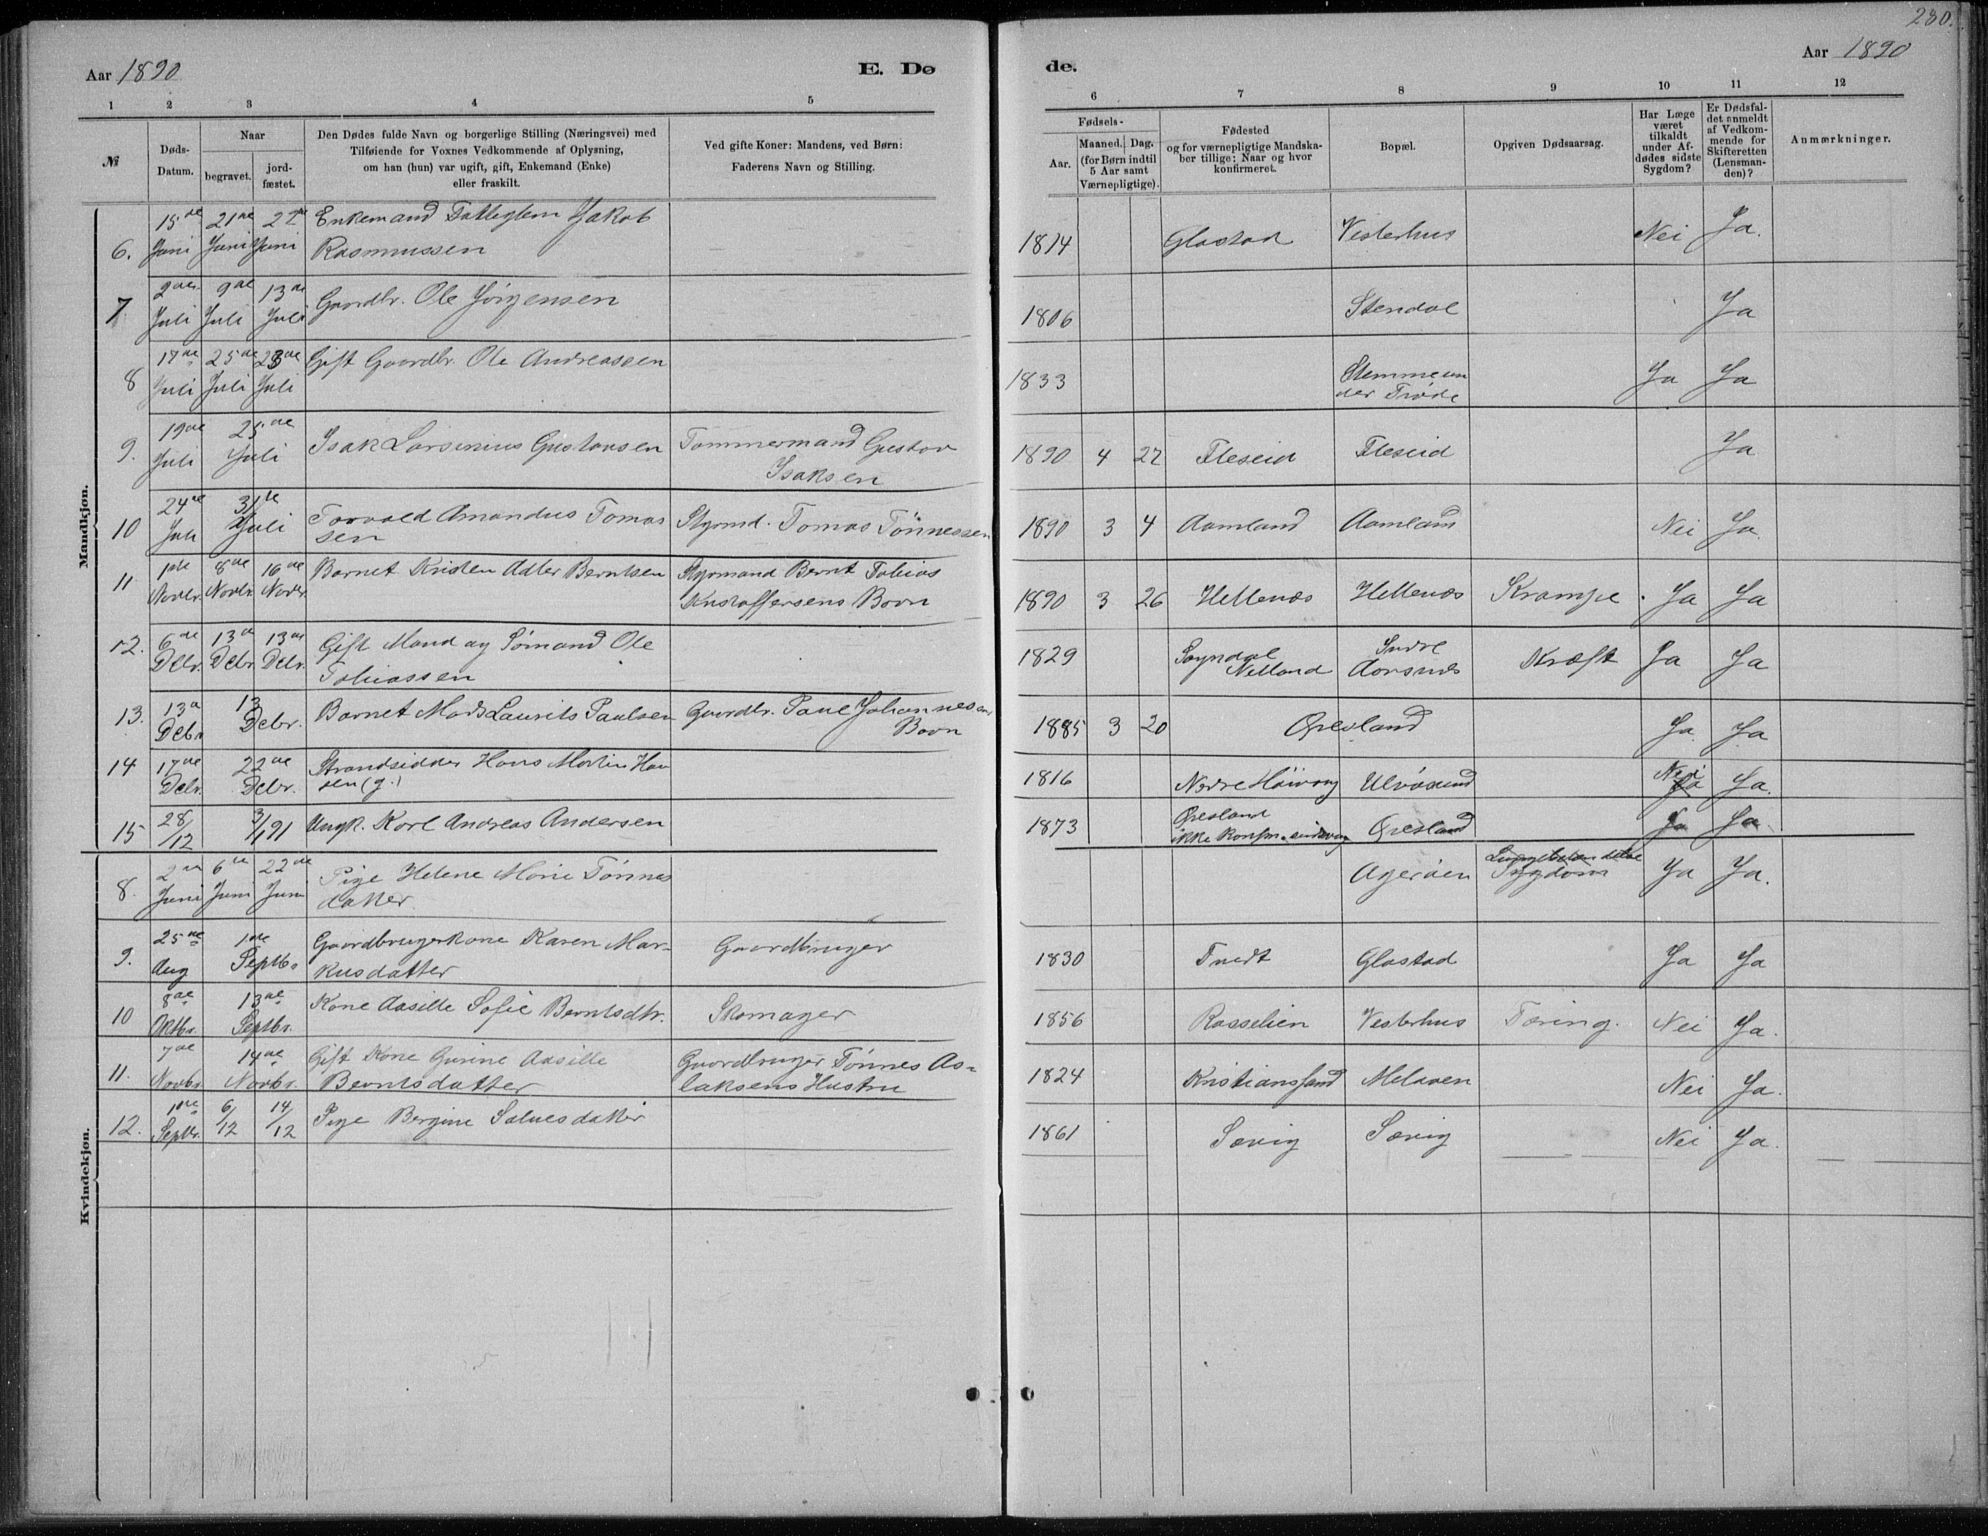 230.
Aar 1890
E. Dø
de.
Aar 1890
1 2 3 4 5
6 7 8 9 10 11 12
№
Døds-
Datum.
Naar
begravet.
jord-
fæstet.
Den Dødes fulde Navn og borgerlige Stilling (Næringsvei) med
Tilføiende for Voxnes Vedkommende af Oplysning,
om han (hun) var ugift, gift, Enkemand (Enke)
eller fraskilt.
Ved gifte Koner: Mandens, ved Børn:
Faderens Navn og Stilling.
Fødsels-
Aar.
Maaned. Dag.
(for Børn indtil
5 Aar samt
Værnepligtige).
Fødested
og for værnepligtige Mandska-
ber tillige: Naar og hvor
konfirmeret.
Bopæl.
Opgiven Dødsaarsag.
Har Læge
været
tilkaldt
under Af-
dødes sidste
Sygdom?
Er Dødsfal-
det anmeldt
af Vedkom-
mende for
Skifteretten
(Lensman-
den)?
Anmærkninger.
Mandkjøn.
15de 21de 22de Enkemand Jakob
6. Juni Juni Juni Rasmussen
1814 Glastad Vesterhus Nei Ja.
7 2den 9de 13de Gaardbr. Ole Jörgensen
Juli Juli Juli
1806 Stendal Ja
17de 25de Gift Gaardbr. Ole Andreassen
8 Juli Juli Juli
1833 Stemmeun
der Trøde Ja Ja
19de 25de
9. Juli Juli Isak Larsinius Gustavsen Tømmermand Gustav
Isaksen
1890 4 27 Fleseid Fleseid Ja
24de 31te
10 Juli Juli Torvald Amandus Tomas
sen Styrmd. Tomas Tönnessen
1890 3 4 Aamland Aamland Nei Ja.
11 1ste 8de 16de Barnet Kristen Adler Berntsen Styrmand Bernt Tobias
Novbr. Novbr. Novbr. Kristoffersens Barn
1890 3 26 Hellenæs Hellenæs Krampe. Ja Ja
12. 6te 13de 13de Gift Mand og Sømand Ole
Debr. Debr. Debr. Tobiassen
1829 Sogndal
Netland Indre
Aarsnes Kræft Ja Ja
13. 13de 13
Debr. Debr. Barnet Mads Laurits Paulsen Gaardbr. Paul Johannesens
Barn
1885 3 20 Øresland Ja Ja
14 17de 22de Strandsidder Hans Martin Han
Debr. Debr. sen (g.)
1816 Nedre Höivåg Ulvösund Nei
Ja Ja.
15 28/12 3/1 91 Ungk. Karl Andreas Andersen
1873 Øresland
ikke konfm. Øresland Ja Ja.
Kvindekjøn.
8. 2den 6te 22de Pige Helene Marie Tønnes
Juni Juni Juni datter.
Ageröen
Sygdom Ja Ja.
9. 25de 1ste Gaardbrugerkone Karen Mar-
Aug Septbr. kusdatter Gaardbruger
1830 Tvedt Glastad Ja Ja
10 8de 13de Kone Aasille Sofie Berntsdtr. Skomager
Oktbr. Septbr.
1856 Rosselien Vesterhus Tæring. Nei Ja.
11. 7de 14de Gift Kone Gurine Aasille Gaardbruger Tönnes As-
Novbr. Novbr. Berntsdatter laksens Hustru
1824 Kristianssand Nei Ja.
12. 1ste 6/12 14/12 Pige Bergine Salvesdatter
Septbr.
1861 Særvig Særvig Nei Ja.